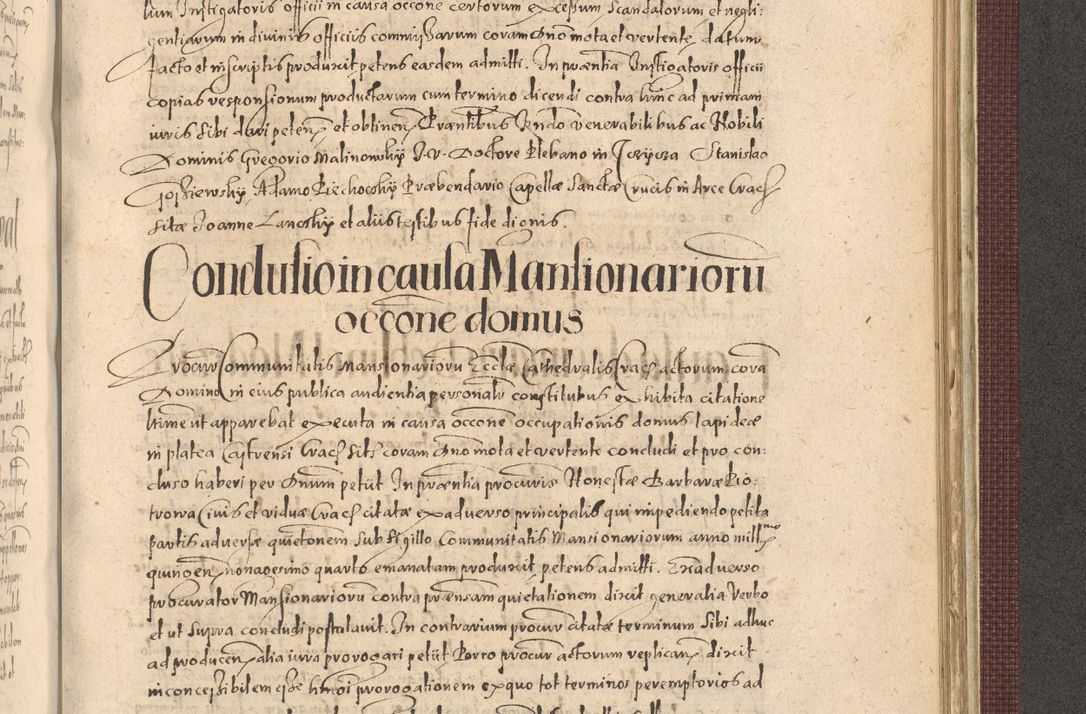 tium Instigatoris officii in causa occone certorum excessum scandalorum et negli:
gentiarum in divinis officiis commissarum coram Dno mota et vertente, datum
facto et in scriptis produxit petens easdem admitti. In praentia Instigatoris officii
copias responsionum productarum cum termino dicendi contra hinc ad primam
iuris sibi dari peten. et obtinen. Praentibus Ibidem venerabilibus ac Nobili
Dominis Gregorio Malinowskÿ I.V. Doctore Plebano in Stanislao
Adamo Piechockÿ Praebendario Capellae Sanctae Crucis in Arce Crac
sitae Joanne Lanckÿ et aliis testibus fide dignis.
Conclusio in causa Mansionarioru
occone domus
Procur Communitatis Mansionarioru Eccłae Cathedralis Crac actorum cora
Domino in eius publica audientia personalr constitutus exhibita citatione
ltime ut apparebat executa in causa occone occupationis domus lapideae
in platea Castrensi Crac sits coram Dno mota et vertente concludi et pro con:
cluso haberi per Dnum petiit In praentia procuris Honestae Barbarae Pio:
trowa Civis et viduae Crac citatae ex adverso principalis qui impediendo petita
partis adversae quietonem sub Sigillo Communitatis Mansionariorum anno mill mo
quingen. nonagesimo quarto emanatam produxit petens admitti. Ex adverso
procurator Mansionarioru contra praensam quietationem dixit generalia Verbo
et ut supra concludi postulavit. In contrarium procur citatae terminum sibi adhuc
ad producen. alia iura prorogari petiit Porro procur actorum replican. dixit
inconcessibilem esse hmoi prorogationem ex quo tot terminos peremptorios ad